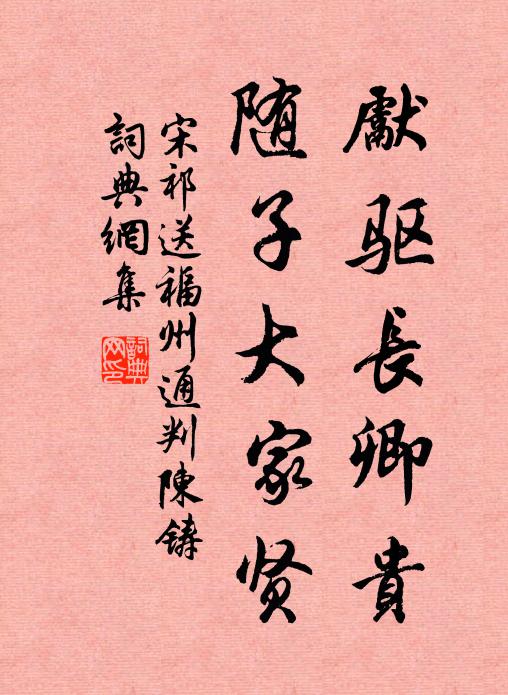 獻驱長卿貴
随子大家贤
宋祁送福州通判陳铸
詞典網集
詞典網印